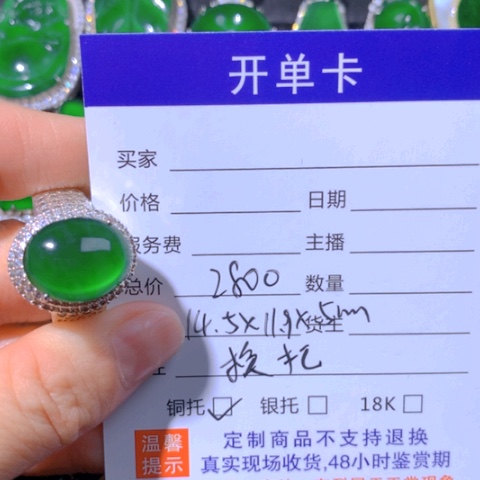 开单卡
买家
价格 日期
服务费 主播
总价 2800 数量
14.5×11.9×5mm 货主
换托
铜托☑ 银托☐ 18K☐
温馨提示
定制商品不支持退换
真实现场收货,48小时鉴赏期